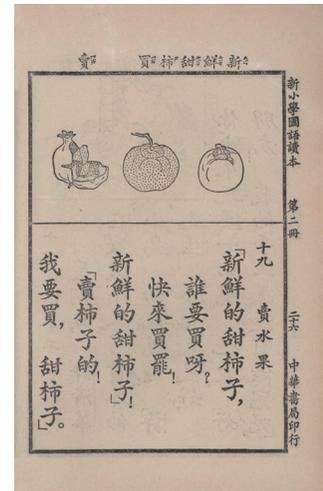 新鮮甜柿買賣
新小學國語讀本 第二冊 二十六 中華書局印行
十九 賣水果
「新鮮的甜柿子,
誰要買呀?
快來買罷!
新鮮的甜柿子!」
「賣柿子的!
我要買,甜柿子。」